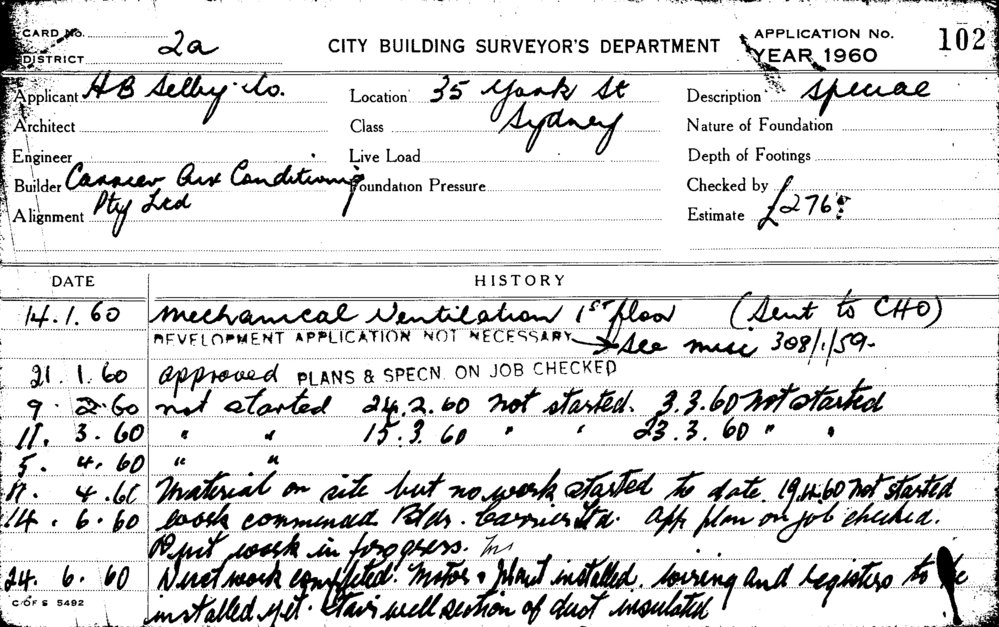 CARD No.
DISTRICT 2a CITY BUILDING SURVEYOR'S DEPARTMENT APPLICATION No. YEAR 1960 102
Applicant H B Selby & Co. Location 35 York St Description Special
Architect Class Sydney Nature of Foundation
Engineer Live Load Depth of Footings
Builder Carrier Air Conditioning Foundation Pressure Checked by
Alignment Pty Ltd Estimate £276
DATE HISTORY
14.1.60 Mechanical Ventilation 1ST floor (Sent to CHO)
DEVELOPMENT APPLICATION NOT NECESSARY See misc 308/1/59.
21.1.60 approved PLANS & SPECN. ON JOB CHECKED
9.2.60 not started 24.2.60 not started. 3.3.60 Not started
11.3.60 " " 15.3.60 " " 23.3.60 " "
5.4.60 " "
11.4.60 Material on site but no work started to date. 19.4.60 Not started
14.6.60 Work commenced Bldr. Carrier Ltd. App plan on job checked.
Duct work in progress.
24.6.60 Duct work completed. Motor & plant installed, wiring and registers to be
C OF S 5492
installed yet. Stair well section of duct insulated